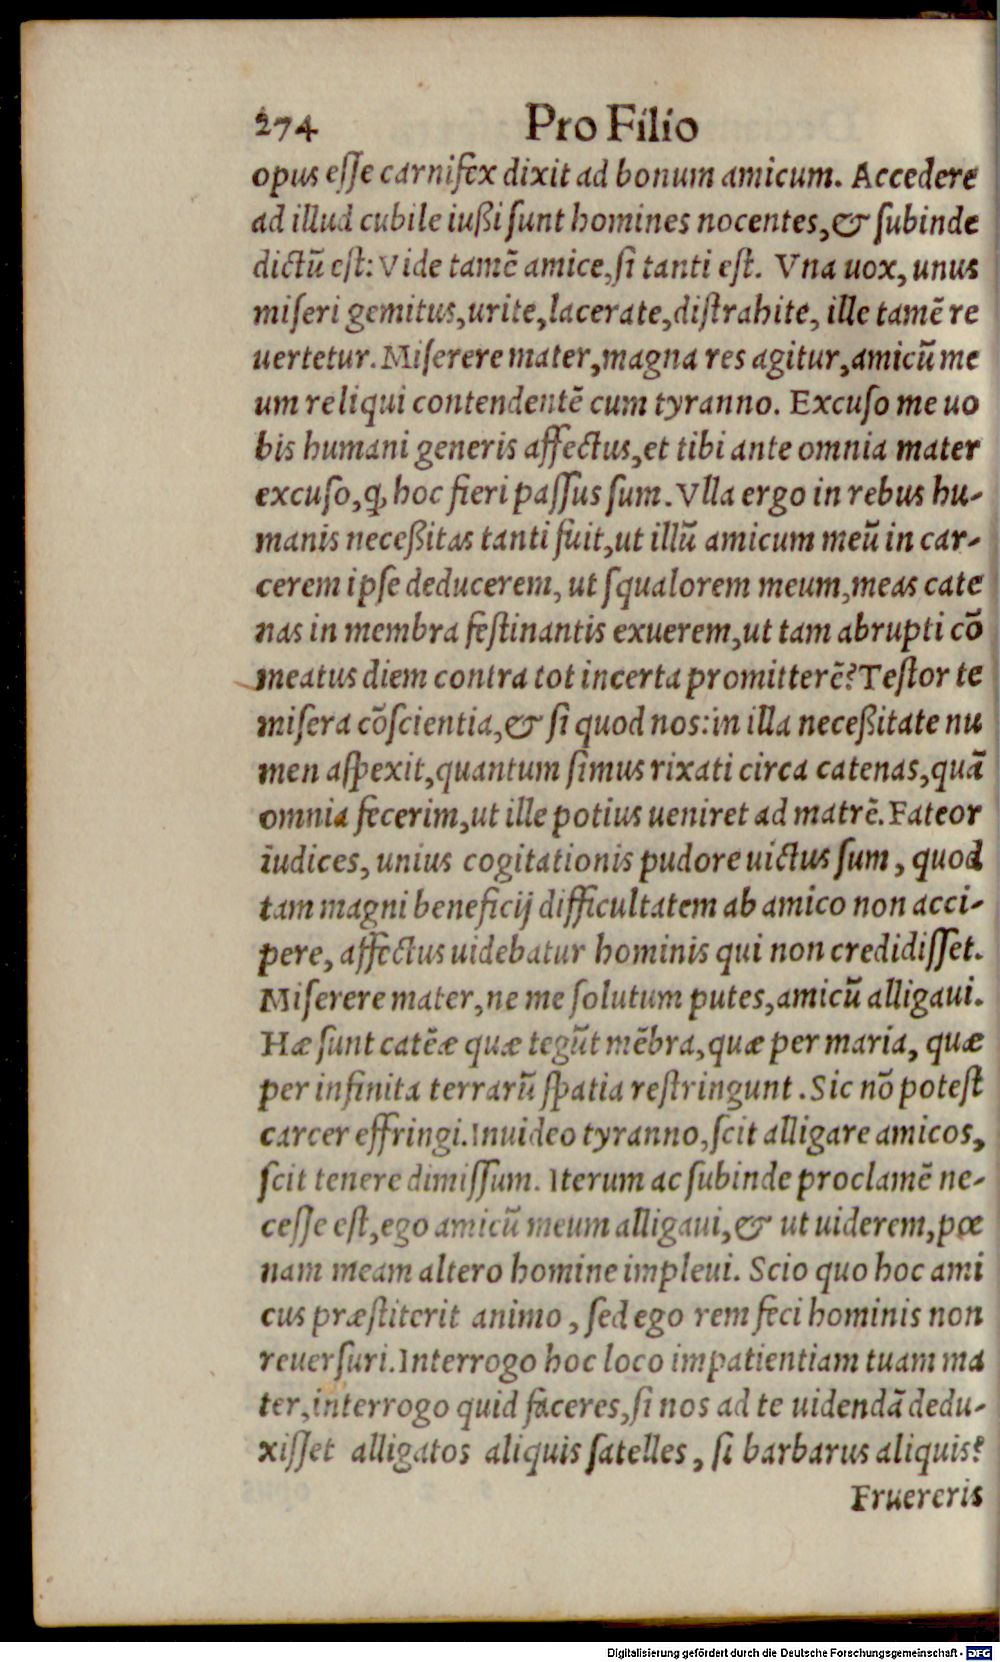 274 Pro Filio
opus eſſe carnifex dixit ad bonum amicum. Accedere
ad illud cubile iußi ſunt homines nocentes,& ſubinde
dictū eſt: Vide tamē amice,ſi tanti eſt. Vna uox, unus
miſeri gemitus,urite,lacerate,diſtrahite, ille tamē re
uertetur. Miſerere mater,magna res agitur,amicū me
um reliqui contendentē cum tyranno. Excuſo me uo
bis humani generis affectus,et tibi ante omnia mater
excuſo,ꝙ hoc fieri paſſus ſum. Vlla ergo in rebus hu-
manis neceßitas tanti fuit,ut illū amicum meū in car-
cerem ipſe deducerem, ut ſqualorem meum,meas cate
nas in membra feſtinantis exuerem,ut tam abrupti cō
meatus diem contra tot incerta promitterē? Teſtor te
miſera cōſcientia,& ſi quod nos:in illa neceßitate nu
men aſpexit,quantum ſimus rixati circa catenas,quā
omnia fecerim,ut ille potius ueniret ad matrē. Fateor
iudices, unius cogitationis pudore uictus ſum, quod
tam magni beneficij difficultatem ab amico non acci-
pere, affectus uidebatur hominis qui non credidiſſet.
Miſerere mater,ne me ſolutum putes,amicū alligaui.
Hæ ſunt catēæ quæ tegūt mēbra,quæ per maria, quæ
per infinita terrarū ſpatia reſtringunt. Sic nō poteſt
carcer effringi. Inuideo tyranno,ſcit alligare amicos,
ſcit tenere dimiſſum. Iterum ac ſubinde proclamē ne-
ceſſe eſt,ego amicū meum alligaui,& ut uiderem,pœ
nam meam altero homine impleui. Scio quo hoc ami
cus præſtiterit animo, ſed ego rem feci hominis non
reuerſuri. Interrogo hoc loco impatientiam tuam ma
ter,interrogo quid faceres,ſi nos ad te uidendā dedu-
xiſſet alligatos aliquis ſatelles, ſi barbarus aliquis?
Fruereris
Digitalisierung gefördert durch die Deutsche Forschungsgemeinschaft - DFG